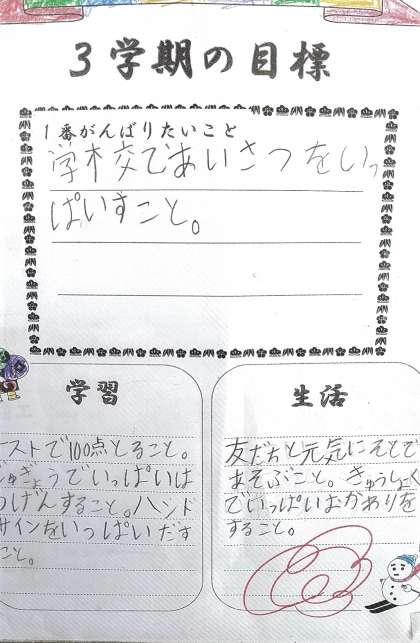 ３学期の目標
１番がんばりたいこと
学校であいさつをいっ
ぱいすこと。
学習
テストで100点とること。
じゅぎょうでいっぱいは
つげんすること。ハンド
サインをいっぱいだす
こと。
生活
友だちと元気にそとで
あそぶこと。きゅうしょく
でいっぱいおかありを
すること。